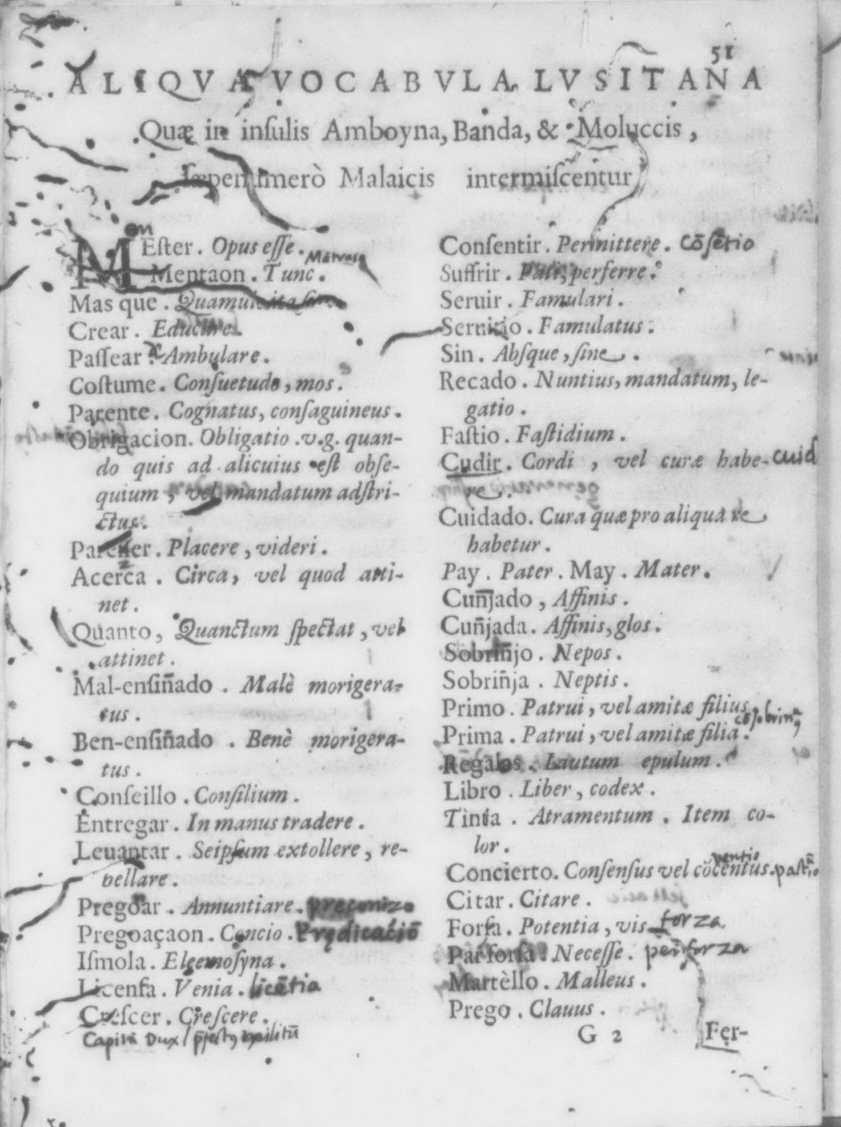 51
ALIQVA VOCABVLA LVSITANA
Quæ in inſulis Amboyna, Banda, & Moluccis,
ſæpenumerò Malaicis intermiſcentur
MEſter. Opus eſſe.
Mentaon. Tunc.
Mas que. Quamuis
Crear. Educare.
Paſſear. Ambulare.
Coſtume. Conſuetudo, mos.
Parente. Cognatus, conſaguineus.
Obrigacion. Obligatio. v.g. quan-
do quis ad alicuius eſt obſe-
quium, vel mandatum adſtri-
ctus.
Parecer. Placere, videri.
Acerca. Circa, vel quod atti-
net.
Quanto, Quanctum ſpectat, vel
attinet.
Mal-enſiñado. Malè morigera-
tus.
Ben-enſiñado. Benè morigera-
tus.
Conſeillo. Conſilium.
Entregar. In manus tradere.
Leuantar. Seipſum extollere, re-
bellare.
Pregoar. Annuntiare.
Pregoaçaon. Concio. Prędicatiō
Iſmola. Eleemoſyna.
Licenſa. Venia. licētia
Creſcer. Creſcere.
Capitā Dux
Conſentir. Permittere. Cōſētio
Suffrir. Pati, perferre.
Seruir. Famulari.
Seruicio. Famulatus.
Sin. Abſque, ſine.
Recado. Nuntius, mandatum, le-
gatio.
Faſtio. Faſtidium.
Cudir. Cordi, vel curæ habe-
Cuidado. Cura quæ pro aliqua re
habetur.
Pay. Pater. May. Mater.
Cuñjado, Affinis.
Cuñjada. Affinis, glos.
Sobriñjo. Nepos.
Sobriñja. Neptis.
Primo. Patrui, vel amitæ filius.
Prima. Patrui, vel amitæ filia.
Regalos. Lautum epulum.
Libro. Liber, codex.
Tinta. Atramentum. Item co-
lor.
Concierto. Conſenſus vel cōcentus.
Citar. Citare.
Forſa. Potentia, vis. forza
Par forſa. Neceſſe. forza
Martèllo. Malleus.
Prego. Clauus.
G 2 Fer-